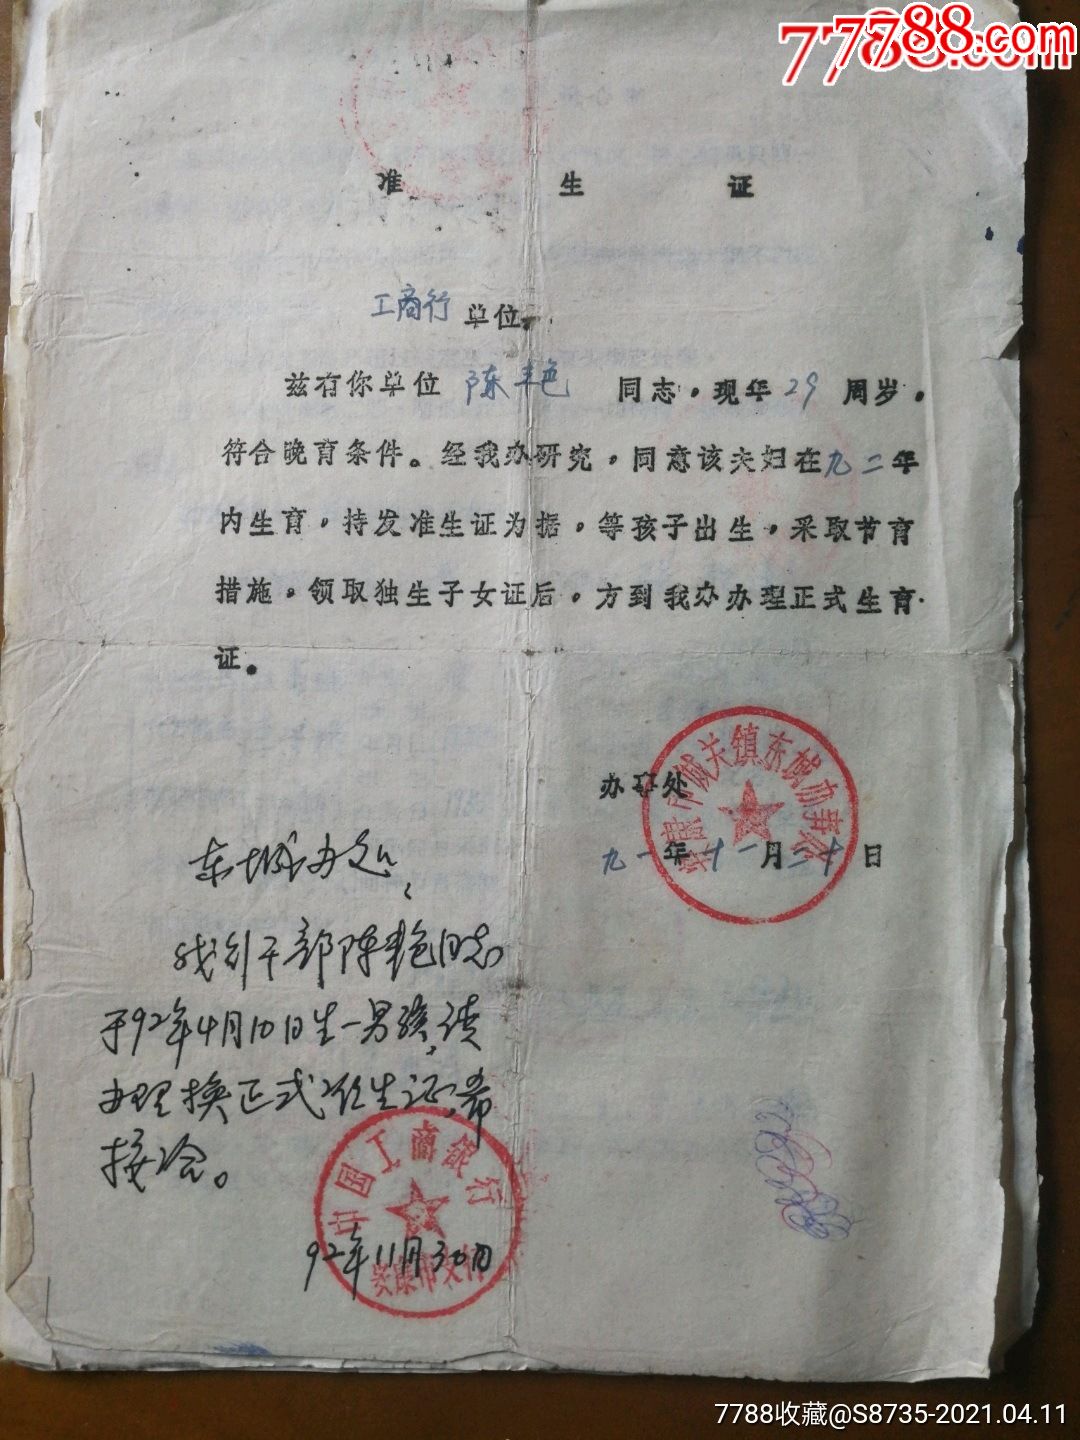 77788.com
准 生 证
工商行单位,
兹有你单位 陈丰色 同志,现年29周岁,
符合晚育条件。经我办研究,同意该夫妇在九二年
内生育,持发准生证为据,等孩子出生,采取节育
措施,领取独生子女证后,方到我办办理正式生育
证。
安康市城关镇东城办事处
办事处
九一年十一月二十日
东城办处:
我行干部陈艳同志
于92年4月10日生一男孩,请
办理换正式准生证,希
接洽。
中国工商银行
安康市支行
92年11月30日
7788收藏@S8735-2021.04.11